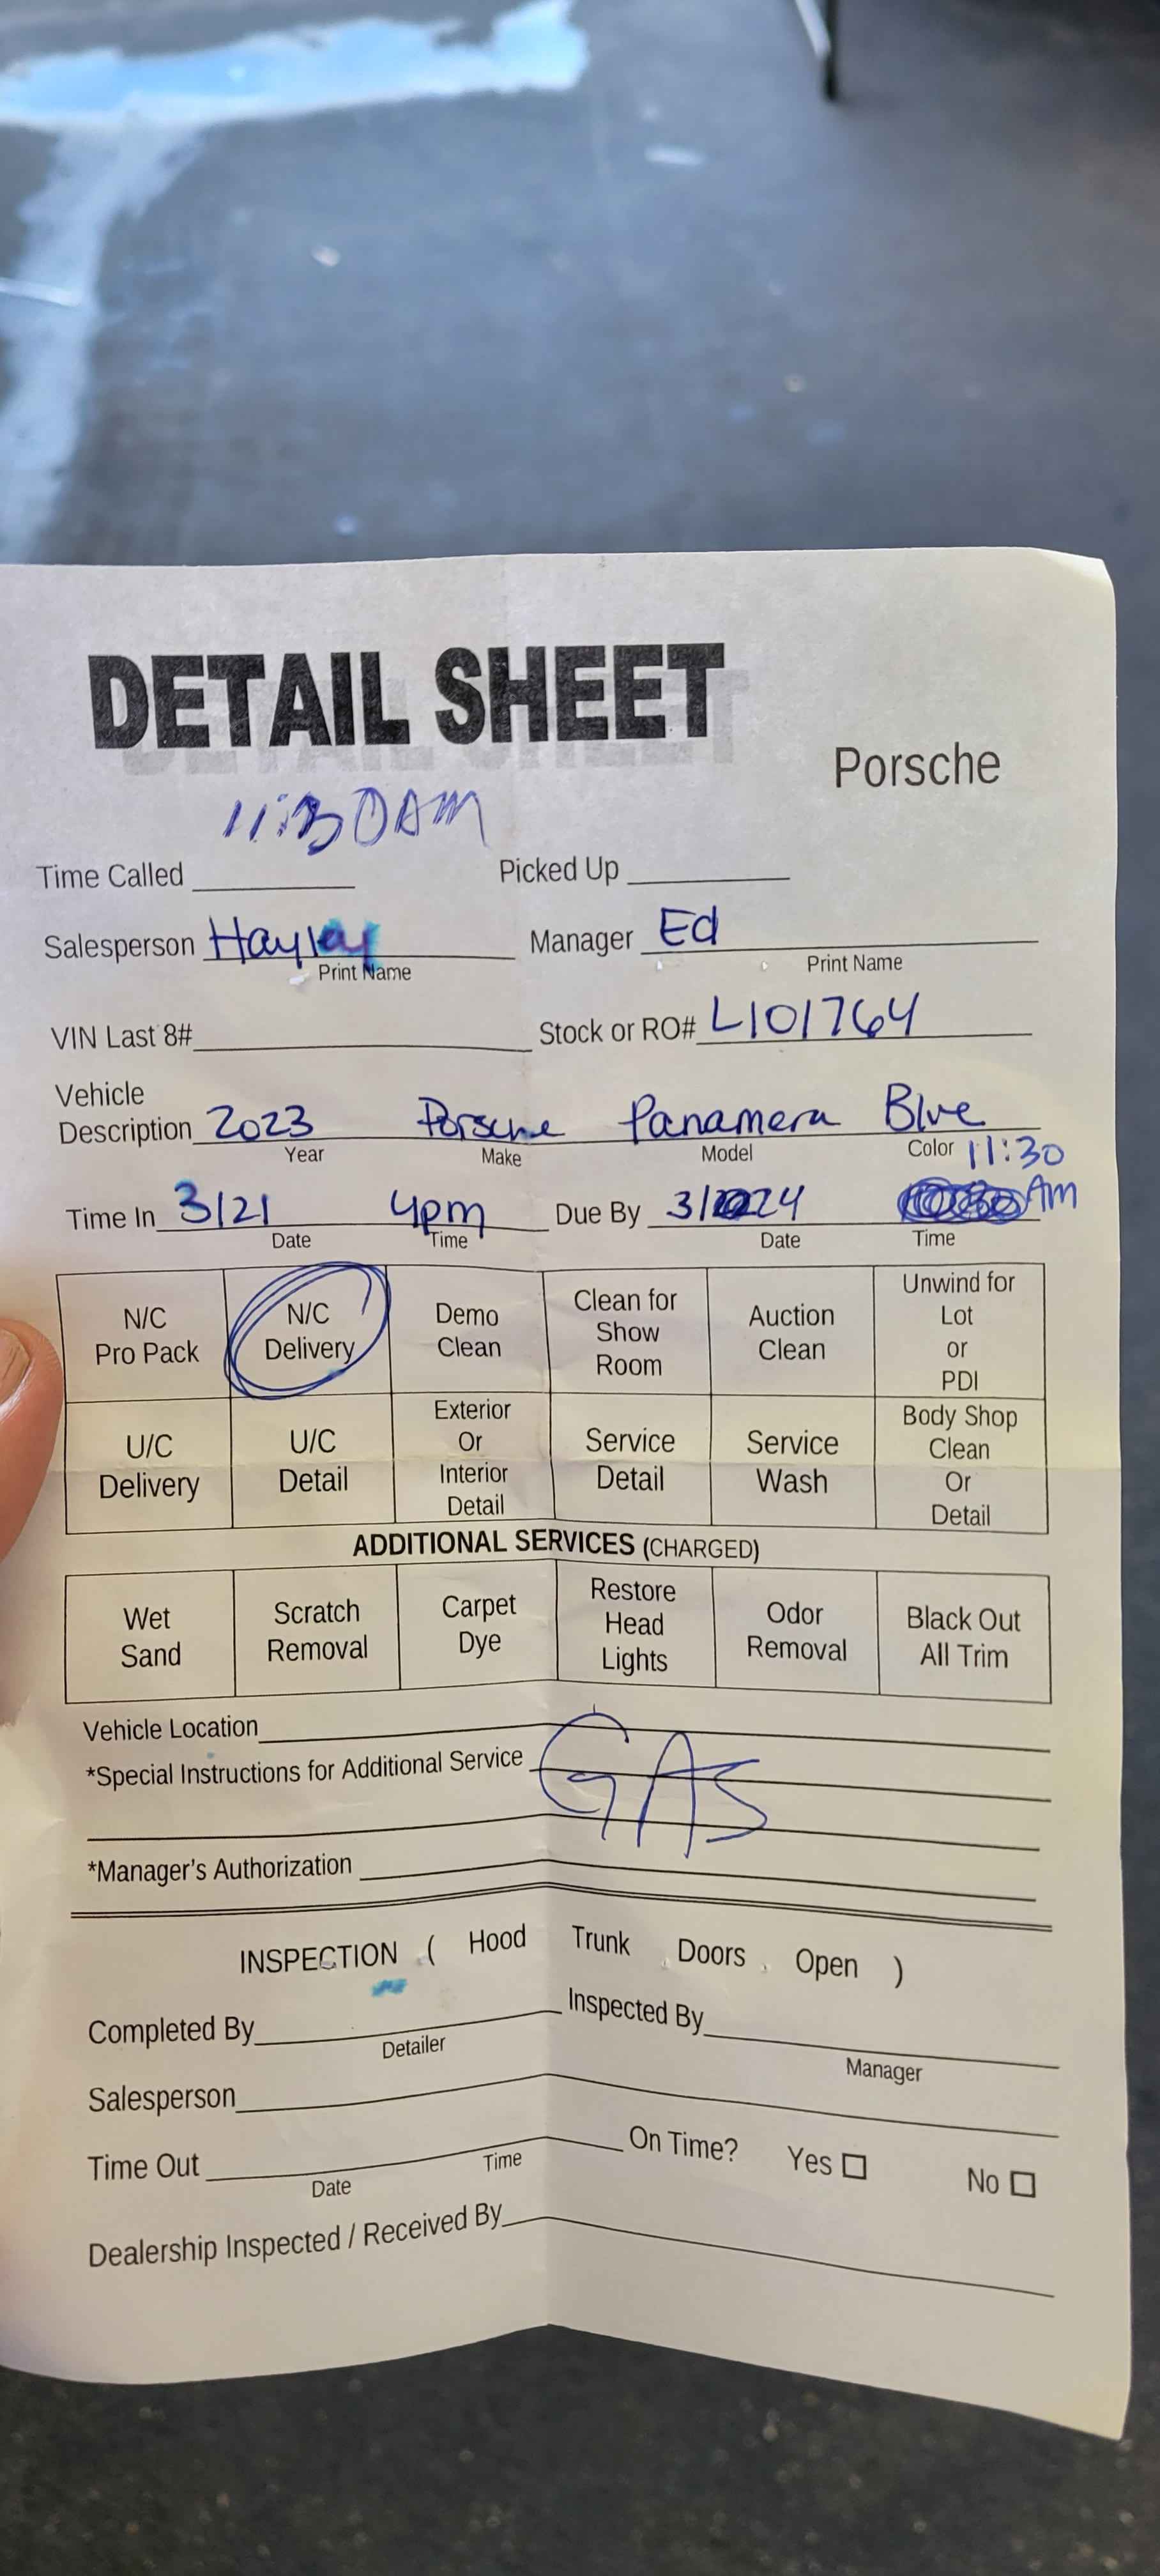 DETAIL SHEET
Porsche
11:30AM
Time Called Picked Up
Salesperson Hayley Manager Ed
Print Name Print Name
VIN Last 8# Stock or RO# L101764
Vehicle
Description 2023 Porsche Panamera Blue
Year Make Model Color 11:30
Time In 3/21 4pm Due By 3/24 AM
Date Time Date Time
N/C Pro Pack
N/C Delivery
Demo Clean
Clean for Show Room
Auction Clean
Unwind for Lot or PDI
U/C Delivery
U/C Detail
Exterior Or Interior Detail
Service Detail
Service Wash
Body Shop Clean Or Detail
ADDITIONAL SERVICES (CHARGED)
Wet Sand
Scratch Removal
Carpet Dye
Restore Head Lights
Odor Removal
Black Out All Trim
Vehicle Location
*Special Instructions for Additional Service GAS
*Manager's Authorization
INSPECTION ( Hood Trunk Doors Open )
Completed By Inspected By
Detailer Manager
Salesperson
Time Out On Time? Yes No
Date Time
Dealership Inspected / Received By